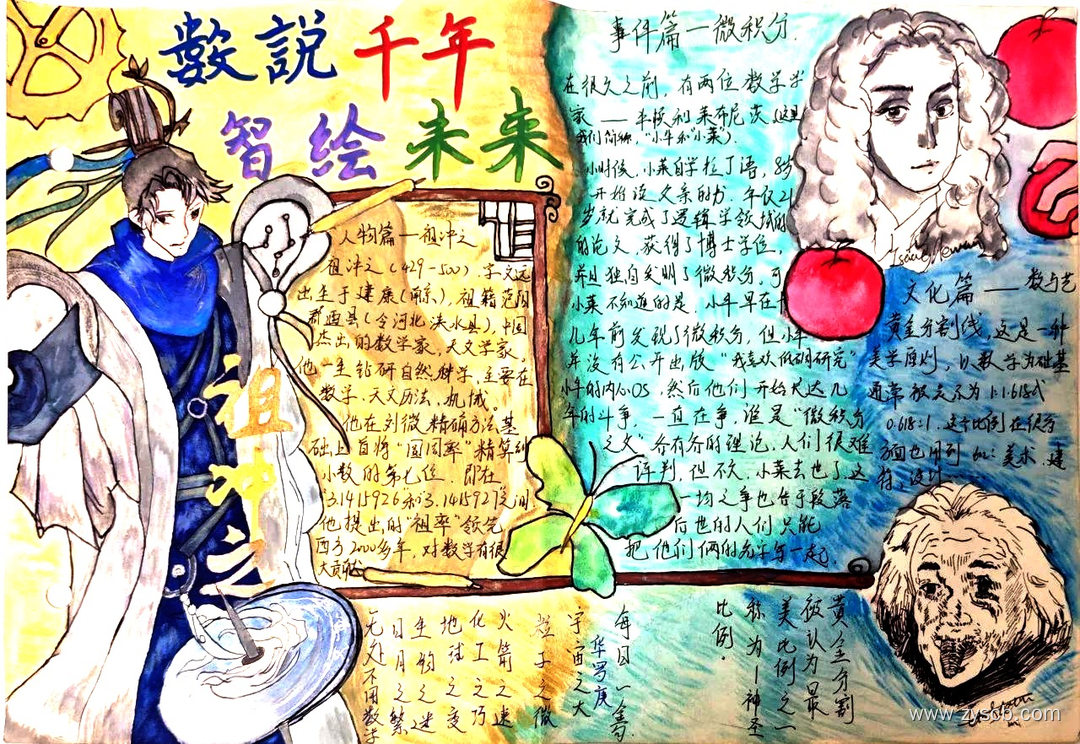 數說千年
智绘未来
人物篇——祖冲之
祖冲之(429-500),字文远
出生于建康(南京),祖籍范阳
郡遒县(今河北涞水县),中国
杰出的数学家,天文学家,
他一生钻研自然科学,主要在
数学、天文历法、机械。
他在刘徽精确方法基
础上首将“圆周率”精算到
小数的第七位,即在
3.1415926和3.1415927之间
他提出的“祖率”领先
西方1000多年,对数学有很
大贡献
祖冲之
事件篇——微积分
在很久之前,有两位数学学
家——牛顿和莱布尼茨(这里
我们简称,“小牛和“小莱”).
小时候,小莱自学拉丁语,8岁
开始读父亲的书.年仅21
岁就完成了逻辑学领域的
的论文,获得了博士学位,
并且独自发明了微积分,可
小莱不知道的是,小牛早在十
几年前发现了微积分,但小牛
年没有公开出版“我喜欢低调研究”
小牛的内心OS,然后他们开始长达几
年的斗争,一直在争,谁是“微积分
之父”各有各的理论,人们很难
评判,但不久,小莱去世了这
一场之争也告于段落
后世的人们只能
把他们俩的名字写一起
Isaac Newton
文化篇——数与艺
黄金分割线,这是一种
美学原则,以数学为基础
通常被表示为1:1.618或
0.618:1,这个比例在很多
方面也用到 如:美术,建
筑,设计
黄金分割
被认为最
美比例之一
称为“神圣
比例.
每日一善.
华罗庚
宇宙之大
粒子之微
火箭之速
化工之巧
地球之变
生物之迷
日月之繁
无处不用数学
www.zyscb.com